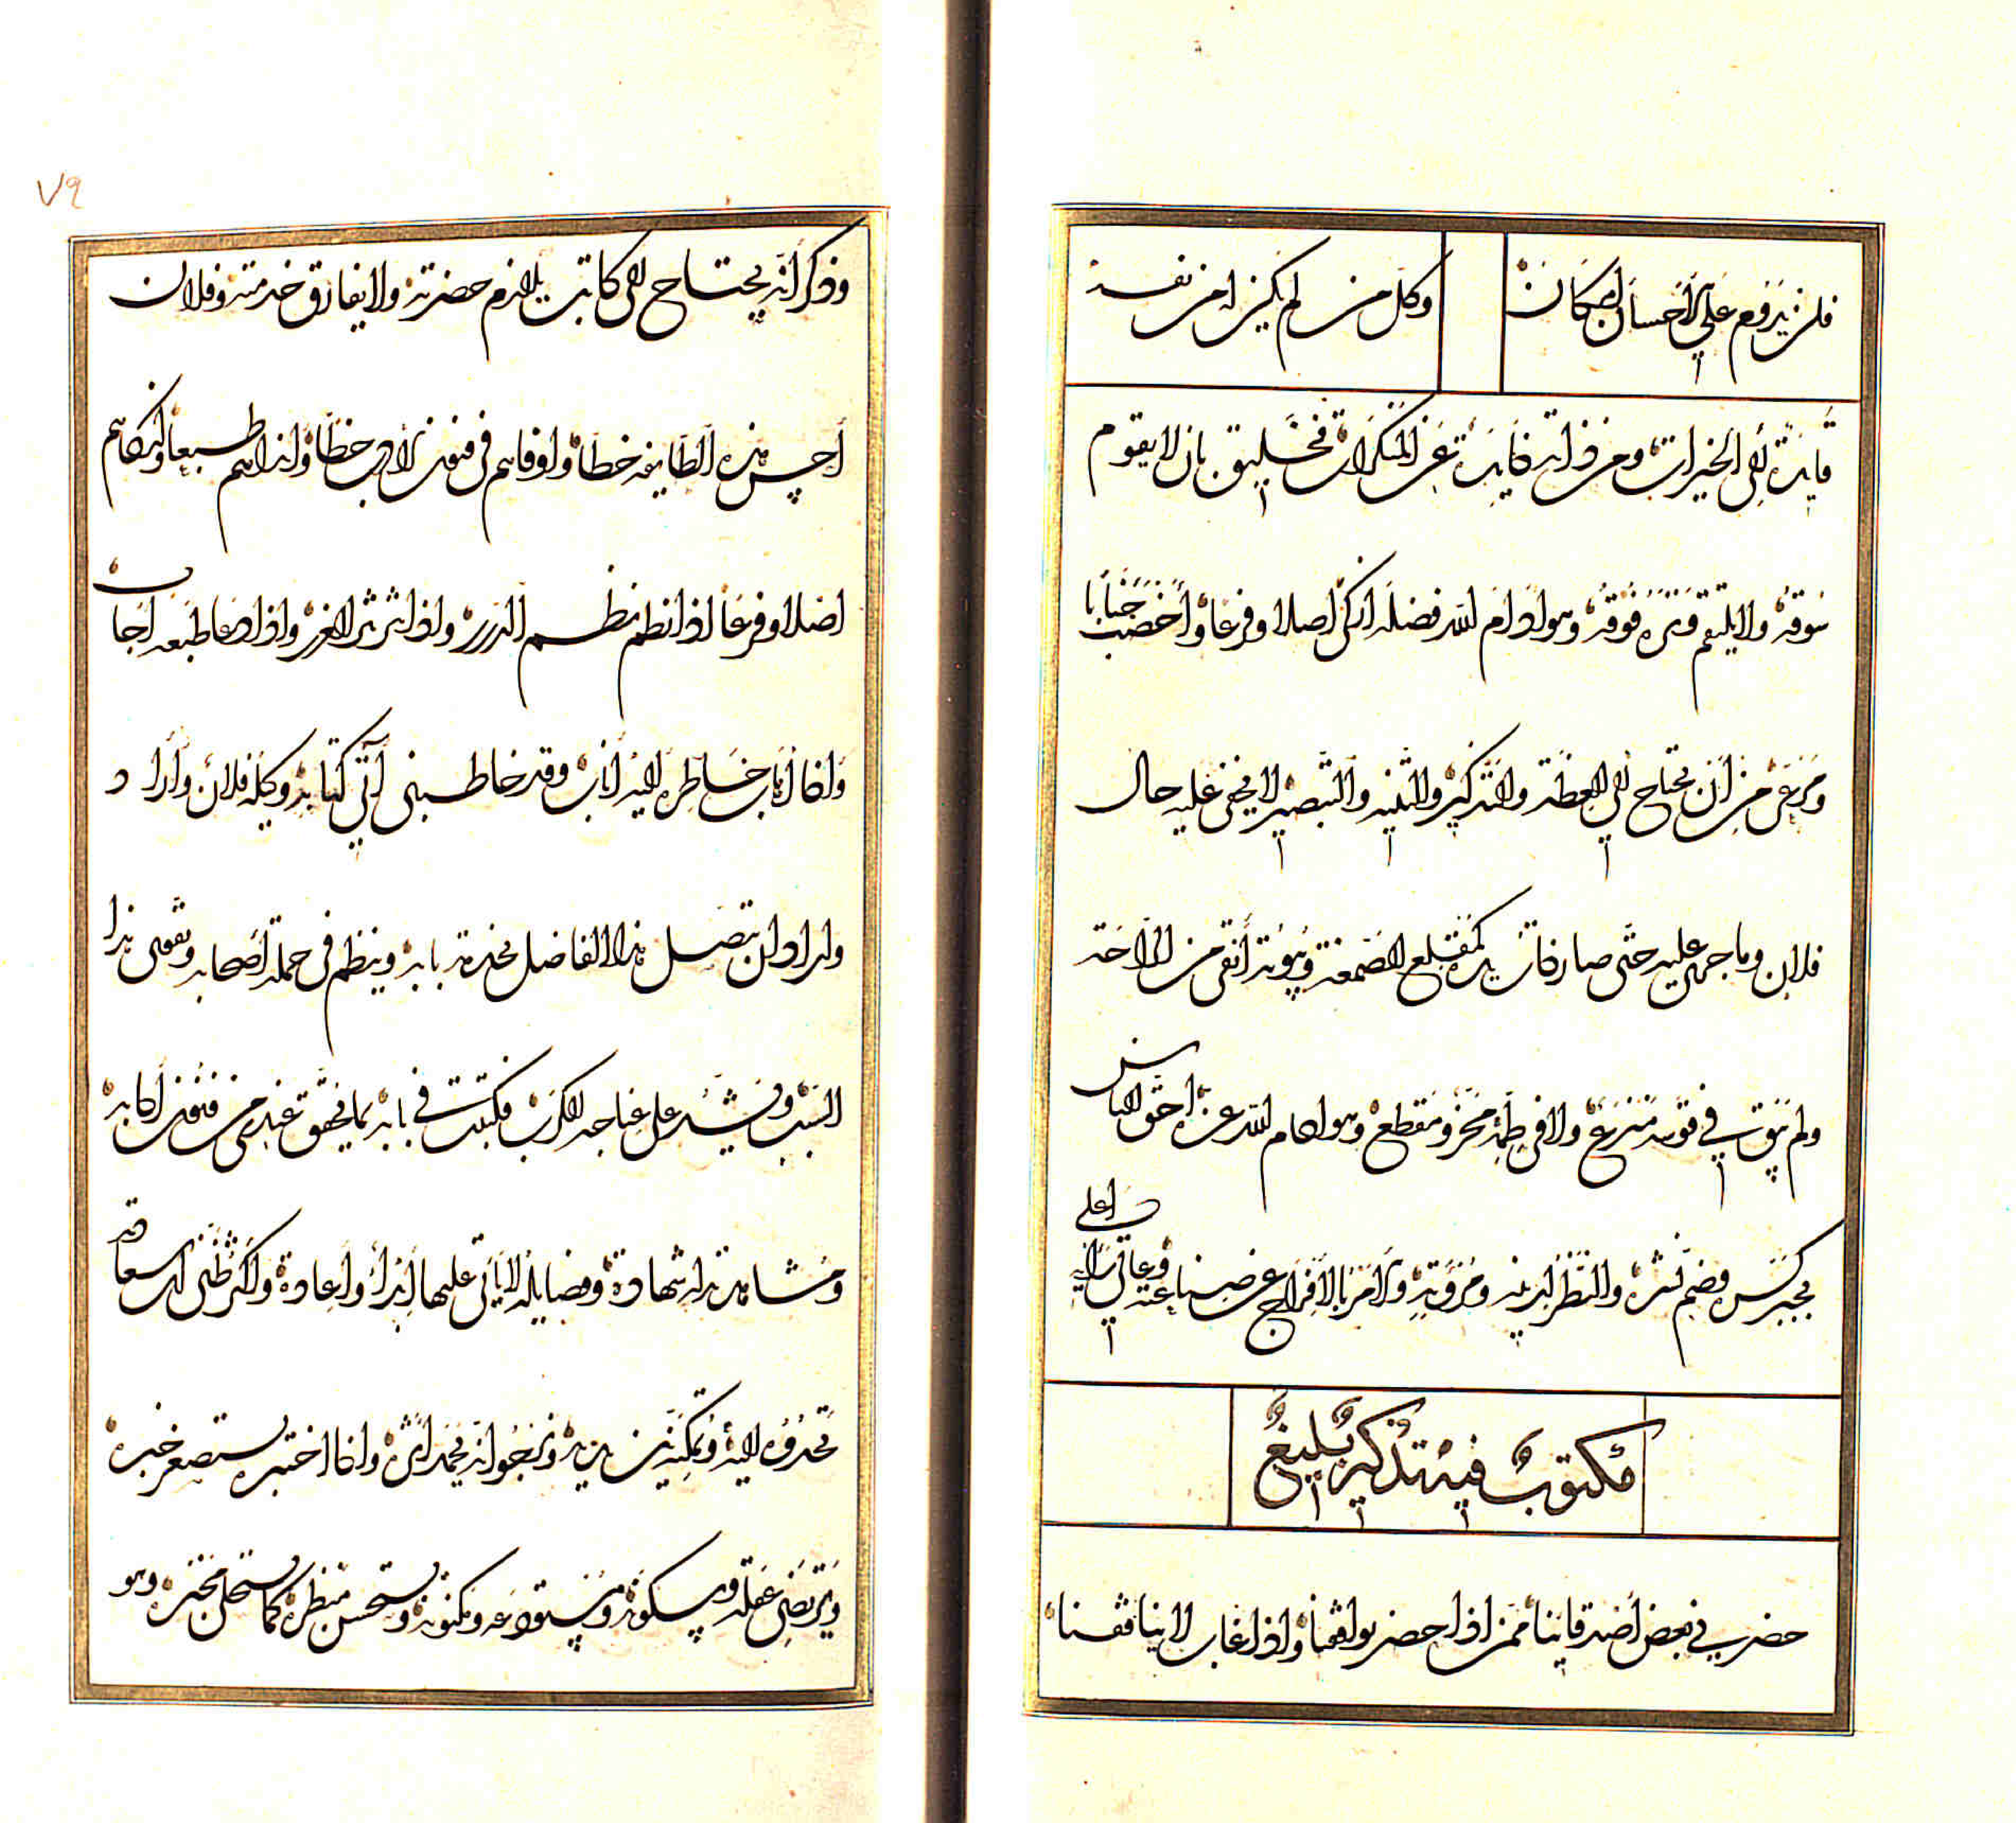 فلن يدوم على الإحسان إمكان
وكل من لم يكن له من نفسه
قايدة إلى الخيرات ومن ذاته ذايدة عن المنكرات فخليق بان لا يقوم
سوقه ولا يلتقم فوقه وهو ادام الله فضله ازكى اصلا وفرعا وأخصب جنابا
ومرعى من أن يحتاج إلى العظة والتذكير والتنبيه والتبصير لا يخفى عليه حال
فلان وما جرى عليه حتى صار كمقلع الصمغة وبيوته أنقى من الراحة
ولم يبق في قوسه منزع ولا في ومقطع وهو ادام الله عزه احق الناس
بجبر كسره وضم نشره والنظر لدينه ومروته والامر بالافراج عن ضيعته وعالي رأيه اعلى
مكتوب فيه تذكير بليغ
حضرني بعض أصدقاينا ممن اذا حضر يوافقنا واذا غاب لا ينافقنا
٧٩
وذكر أنه يحتاج الى كاتب يلازم حضرته ولا يفارق خدمته وفلان
احسن هذه الطايفة خطا واوفاهم في فنون الادب حظا واذكاهم طبعا وازكاهم
اصلا وفرعا اذا نظم نظم الدرر واذا نثر نثر الغرر واذا دعا طبعه اجاب
واذا أناب خاطره اليه أناب وقد خاطبني في كتابه وكيله فلان وأراد
واراد ان يتصل هذا الفاضل بخدمة بابه وينتظم في جملة أصحابه ويقوى هذا
السبب ويشد على عناجه الكرب فكتبت في بابه بما تحقق عندي من فنون آدابه
ومشاهدته له شهادة وفضايله لا يأتي عليها ابداء واعادة واكثر ظني ان سعادته
تحدوه اليه وتمكنه من يديه ونرجو انه يحمد اثره واذا اختبره يستصغر خبره
ويرتضي عقله وسكونه ومستودعه ومكنونه ويستحسن منظره كما يستحلي مخبره وهو